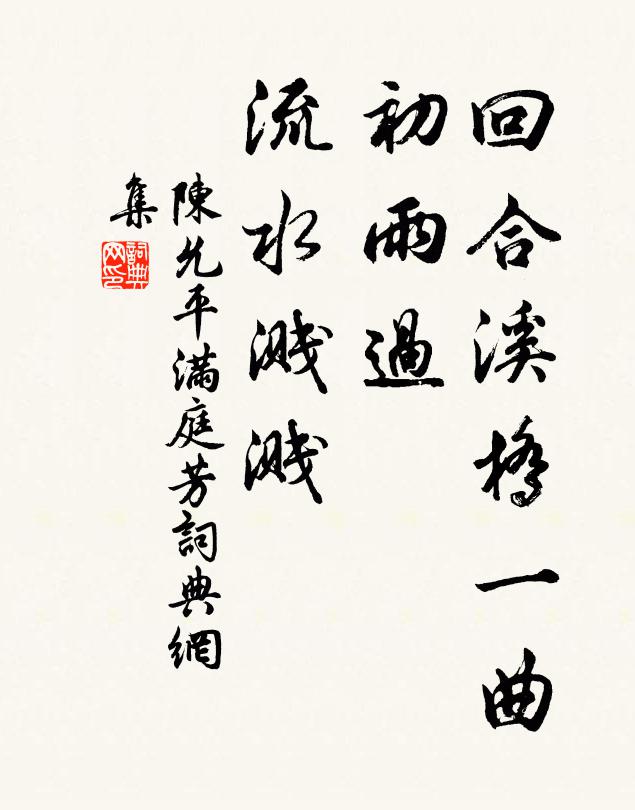 回合溪橋一曲
初雨過
流水濺濺
陳允平滿庭芳詞典網
集
詞典網印